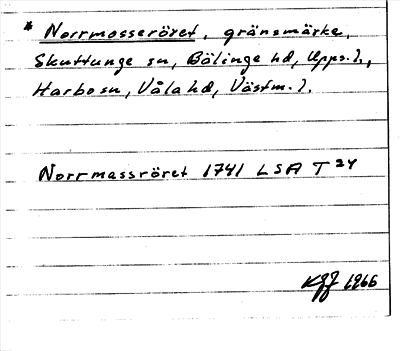 * Norrmosseröret, gränsmärke,
Skuttunge sn, Bälinge hd, Upps. l.,
Harbo sn, Våla hd, Västm. l.
Norrmassröret 1741 LSA T 24
KGJ 1966